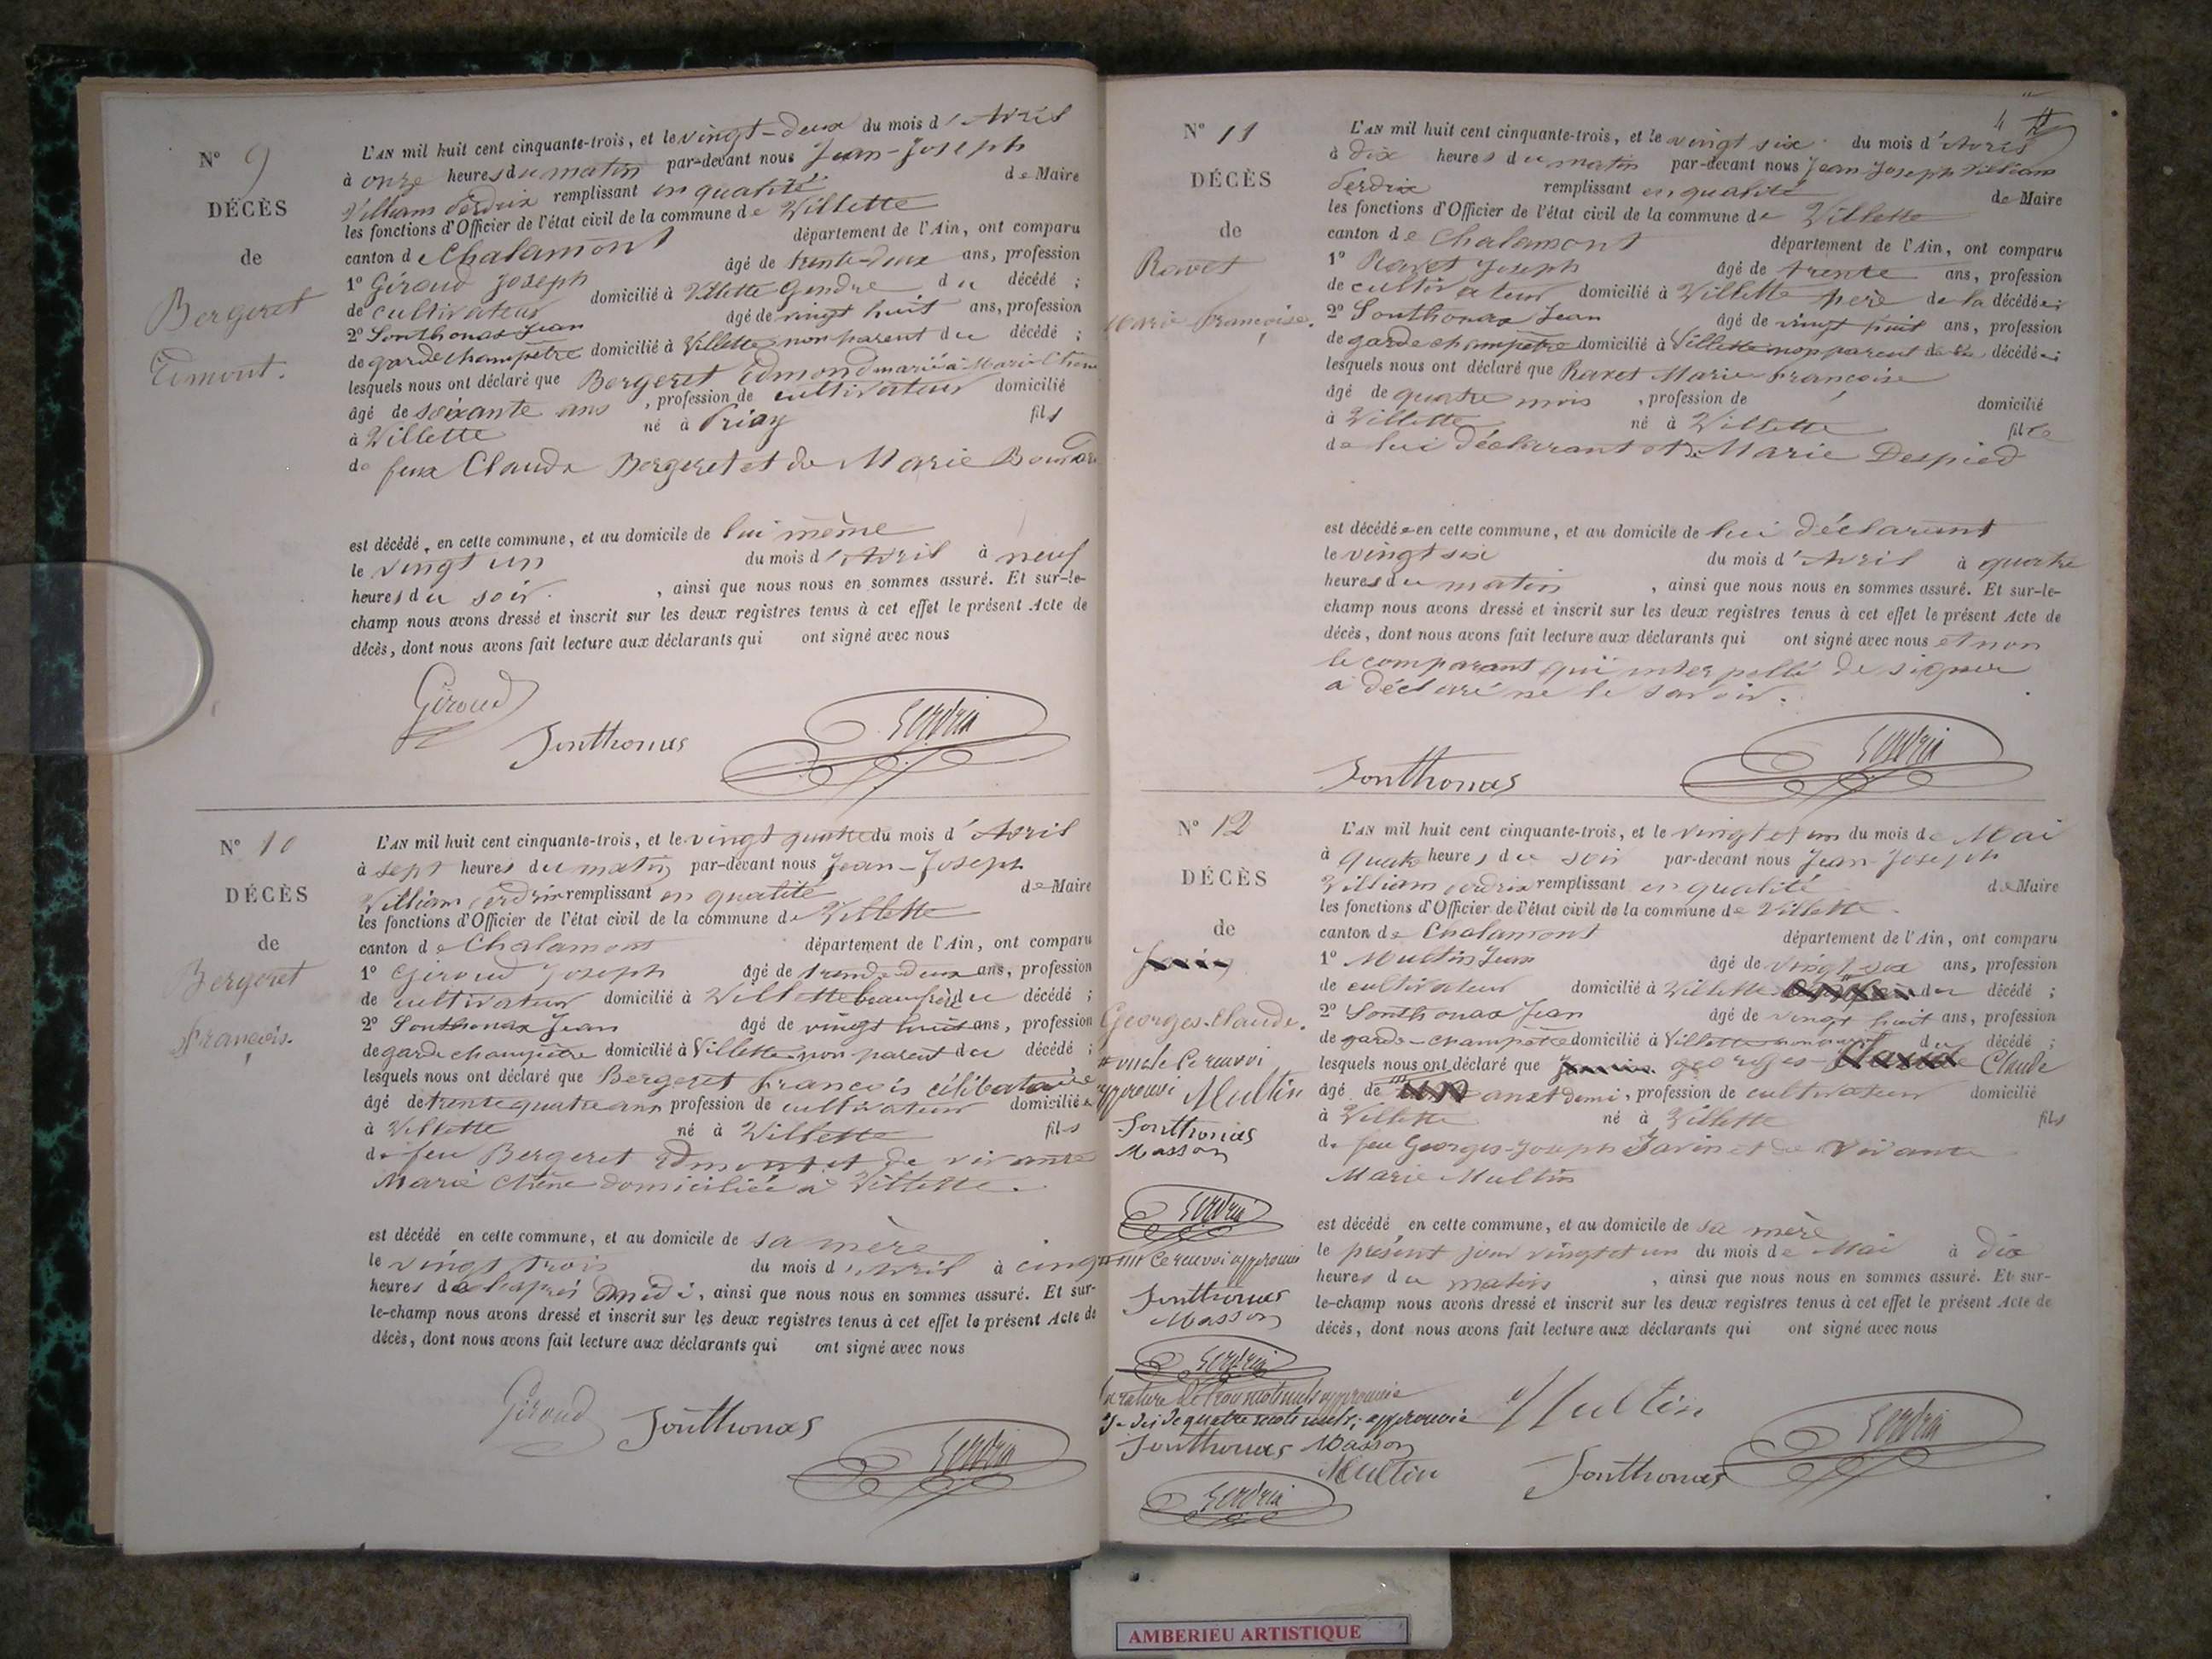 N° 9
DÉCÈS
de
Bergeret
Edmont.
L'AN mil huit cent cinquante-trois, et le vingt-deux du mois d'Avril
à onze heures du matin par-devant nous Jean-Joseph
William Perdrix remplissant en qualité de Maire
les fonctions d'Officier de l'état civil de la commune de Villette
canton de Chalamont département de l'Ain, ont comparu
1° Giroud Joseph âgé de trente-deux ans, profession
de cultivateur domicilié à Villette Gendre du décédé ;
2° Sonthonax Jean âgé de vingt huit ans, profession
de garde champêtre domicilié à Villette non parent du décédé ;
lesquels nous ont déclaré que Bergeret Edmond marié à Marie Chêne
âgé de soixante ans , profession de cultivateur domicilié
à Villette né à Priay fils
de feux Claude Bergeret et de Marie
est décédé, en cette commune, et au domicile de lui même
le vingt un du mois d'Avril à neuf
heures du soir. , ainsi que nous nous en sommes assuré. Et sur-le-
champ nous avons dressé et inscrit sur les deux registres tenus à cet effet le présent Acte de
décès, dont nous avons fait lecture aux déclarants qui ont signé avec nous
Giroud
Sonthonas
Perdrix
N° 10
DÉCÈS
de
Bergeret
François.
L'AN mil huit cent cinquante-trois, et le vingt quatre du mois d'Avril
à sept heures du matin par-devant nous Jean-Joseph
William Perdrix remplissant en qualité de Maire
les fonctions d'Officier de l'état civil de la commune de Villette
canton de Chalamont département de l'Ain, ont comparu
1° Giroud Joseph âgé de trente deux ans, profession
de cultivateur domicilié à Villette beaufrère du décédé ;
2° Sonthonax Jean âgé de vingt huit ans, profession
de garde champêtre domicilié à Villette non parent du décédé ;
lesquels nous ont déclaré que Bergeret François célibataire
âgé de trente quatre ans profession de cultivateur domicilié
à Villette né à Villette fils
de feu Bergeret Edmont et de vivante
Marie Chêne domiciliée à Villette.
est décédé en cette commune, et au domicile de sa mère
le vingt trois du mois d'Avril à cinq
heures de l'après midi, ainsi que nous nous en sommes assuré. Et sur-
le-champ nous avons dressé et inscrit sur les deux registres tenus à cet effet le présent Acte de
décès, dont nous avons fait lecture aux déclarants qui ont signé avec nous
Giroud
Sonthonas
Perdrix
4
N° 11
DÉCÈS
de
Ravet
Marie Françoise.
L'AN mil huit cent cinquante-trois, et le vingt six du mois d'Avril
à dix heures du matin par-devant nous Jean Joseph William
Perdrix remplissant en qualité de Maire
les fonctions d'Officier de l'état civil de la commune de Villette
canton de Chalamont département de l'Ain, ont comparu
1° Ravet Joseph âgé de trente ans, profession
de cultivateur domicilié à Villette père de la décédée ;
2° Sonthonax Jean âgé de vingt huit ans, profession
de garde champêtre domicilié à Villette non parent de la décédée ;
lesquels nous ont déclaré que Ravet Marie françoise
âgé de quatre mois , profession de domicilié
à Villette né à Villette fille
de lui déclarant et de Marie Despied
est décédée en cette commune, et au domicile de lui déclarant
le vingt six du mois d'Avril à quatre
heures du matin , ainsi que nous nous en sommes assuré. Et sur-le-
champ nous avons dressé et inscrit sur les deux registres tenus à cet effet le présent Acte de
décès, dont nous avons fait lecture aux déclarants qui ont signé avec nous et non
le comparant qui interpellé de signer
a déclaré ne le savoir.
Sonthonas
Perdrix
N° 12
DÉCÈS
de
Georges Claude.
L'AN mil huit cent cinquante-trois, et le vingt et un du mois de Mai
à quatre heures du soir par-devant nous Jean-Joseph
William Perdrix remplissant en qualité de Maire
les fonctions d'Officier de l'état civil de la commune de Villette
canton de Chalamont département de l'Ain, ont comparu
1° Multin Jean âgé de vingt six ans, profession
de cultivateur domicilié à Villette du décédé ;
2° Sonthonax Jean âgé de vingt huit ans, profession
de garde-champêtre domicilié à Villette non parent du décédé ;
lesquels nous ont déclaré que georges Claude
âgé de an et demi, profession de cultivateur domicilié
à Villette né à Villette fils
de feu Georges-Joseph Javin et de vivante
Marie Multin
est décédé en cette commune, et au domicile de sa mère
le présent jour vingt et un du mois de Mai à dix
heures du matin , ainsi que nous nous en sommes assuré. Et sur-
le-champ nous avons dressé et inscrit sur les deux registres tenus à cet effet le présent Acte de
décès, dont nous avons fait lecture aux déclarants qui ont signé avec nous
oncle Ce renvoi
approuvé Multin
Sonthonas
Masson
Perdrix
Ce renvoi approuvé
Sonthonas
Masson
Perdrix
de quatre mots nuls, approuvée
Sonthonas Masson
Multin
Perdrix
Multin
Sonthonas
Perdrix
AMBERIEU ARTISTIQUE